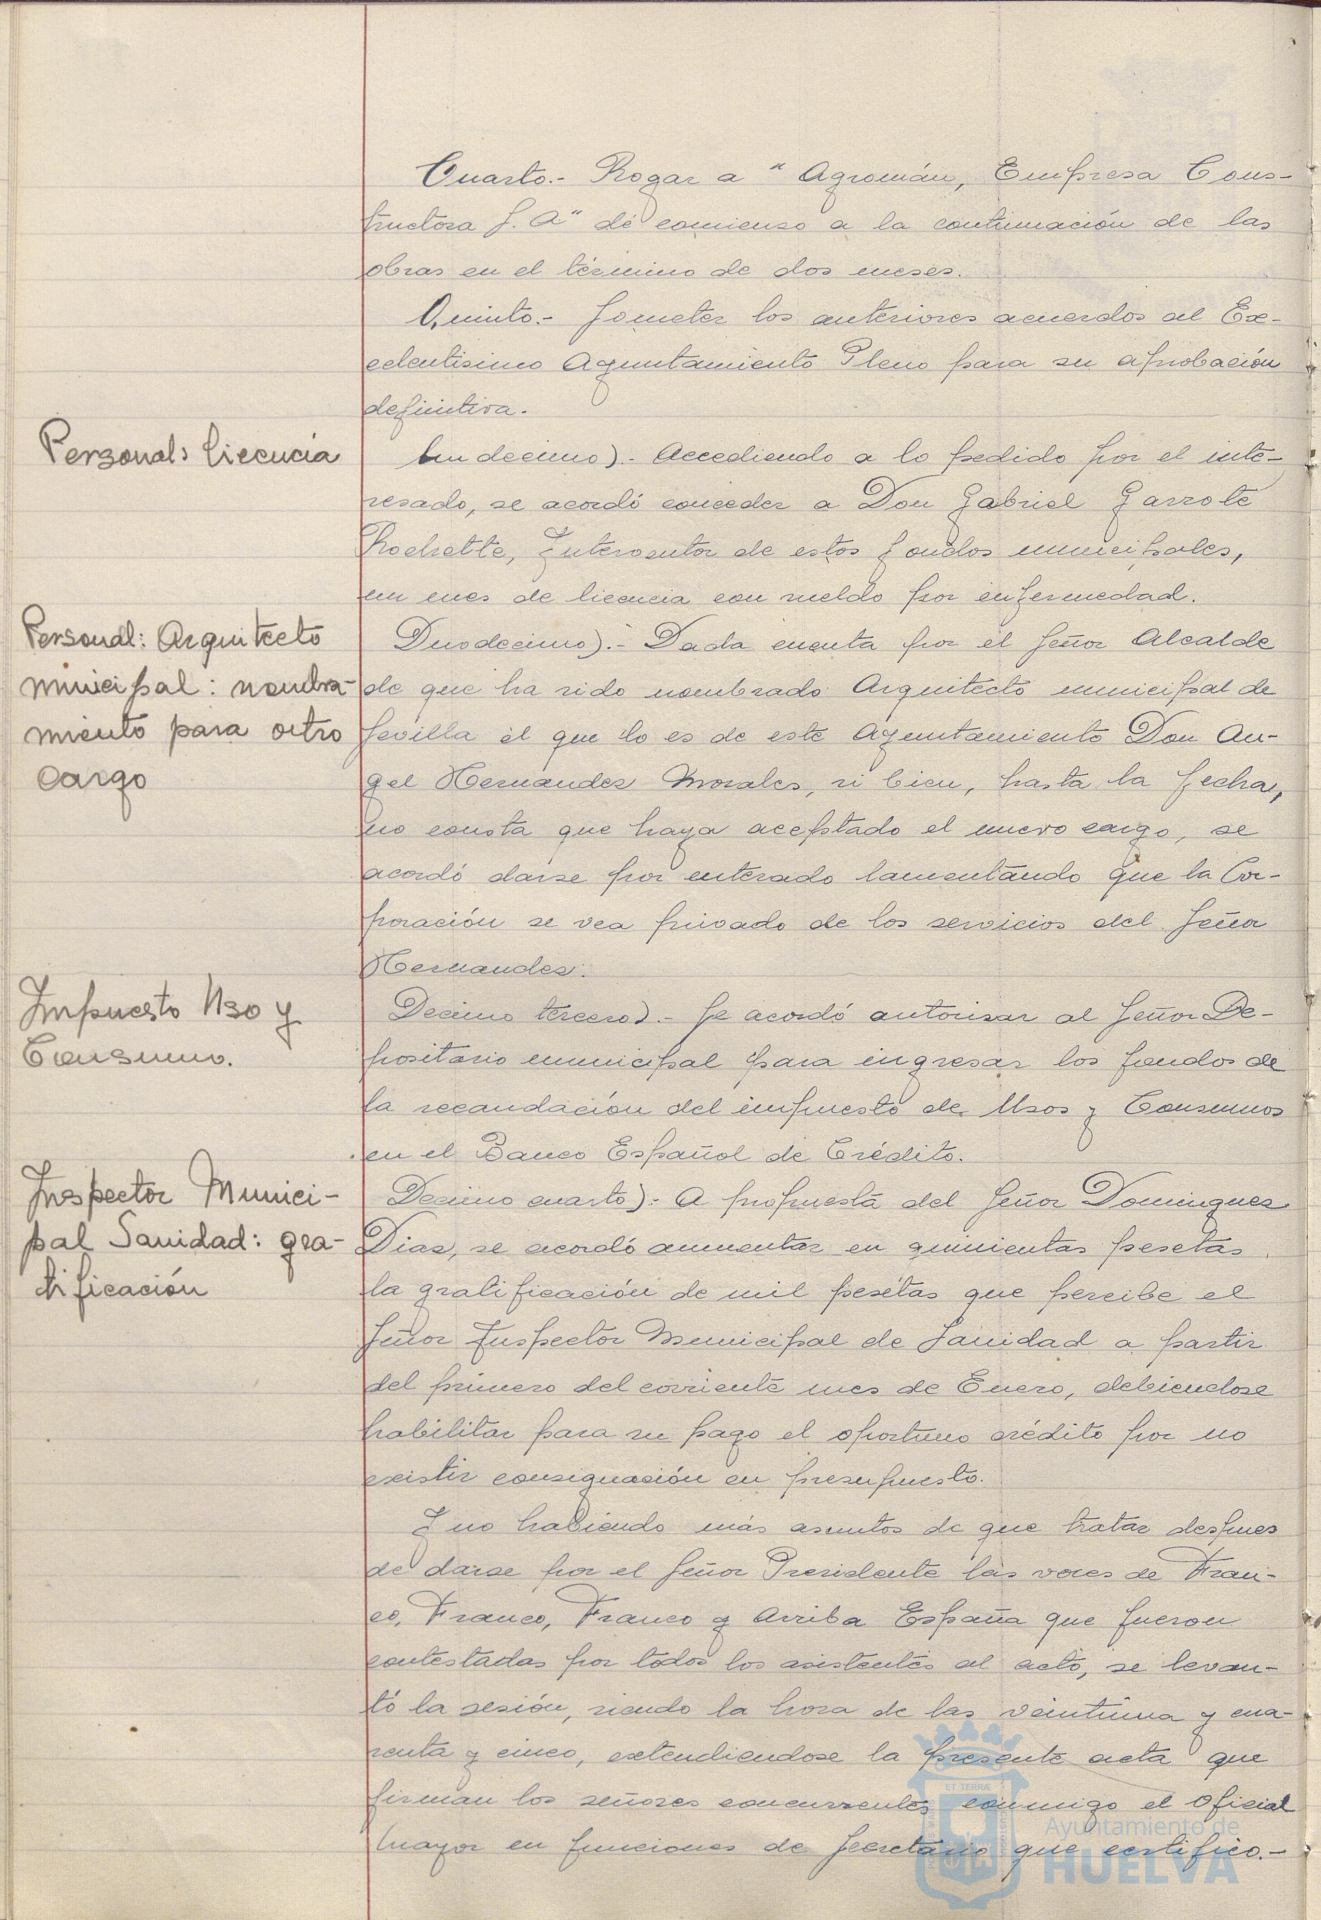 Cuarto.- Rogar a "Agromán, Empresa Cons-
tructora S.A" dé comienzo a la continuación de las
obras en el término de dos meses.
Quinto.- Someter los anteriores acuerdos al Ex-
celentisimo Ayuntamiento Pleno para su aprobación
definitiva.
Personal: licencia
Undecimo).- Accediendo a lo pedido por el inte-
resado, se acordó conceder a Don Gabriel Garrote
Rochette, Interventor de estos fondos municipales,
un mes de licencia con sueldo por enfermedad.
Personal: Arquitecto
municipal: nombra-
miento para otro
cargo
Duodecimo).- Dada cuenta por el Señor Alcalde
de que ha sido nombrado Arquitecto municipal de
Sevilla el que lo es de este Ayuntamiento Don An-
gel Hernandez Morales, si bien, hasta la fecha,
no consta que haya aceptado el nuevo cargo, se
acordó darse por enterado lamentando que la Cor-
poración se vea privado de los servicios del Señor
Hernandez.
Impuesto Uso y
Consumo.
Decimo tercero).- Se acordó autorizar al Señor De-
positario municipal para ingresar los fondos de
la recaudación del impuesto de Usos y Consumos
en el Banco Español de Crédito.
Inspector Munici-
pal Sanidad: gra-
tificación
Decimo cuarto).- A propuesta del Señor Dominguez
Diaz, se acordó aumentar en quinientas pesetas
la gratificación de mil pesetas que percibe el
Señor Inspector Municipal de Sanidad a partir
del primero del corriente mes de Enero, debiendose
habilitar para su pago el oportuno crédito por no
existir consignación en presupuesto.
Y no habiendo más asuntos de que tratar despues
de darse por el Señor Presidente las voces de Fran-
co, Franco, Franco y Arriba España que fueron
contestadas por todos los asistentes al acto, se levan-
tó la sesión, siendo la hora de las veintiuna y cua-
renta y cinco, extendiendose la presente acta que
firman los señores concurrentes conmigo el Oficial
Mayor en funciones de Secretario que certifico.-
ET TERRÆ
Ayuntamiento de
HUELVA